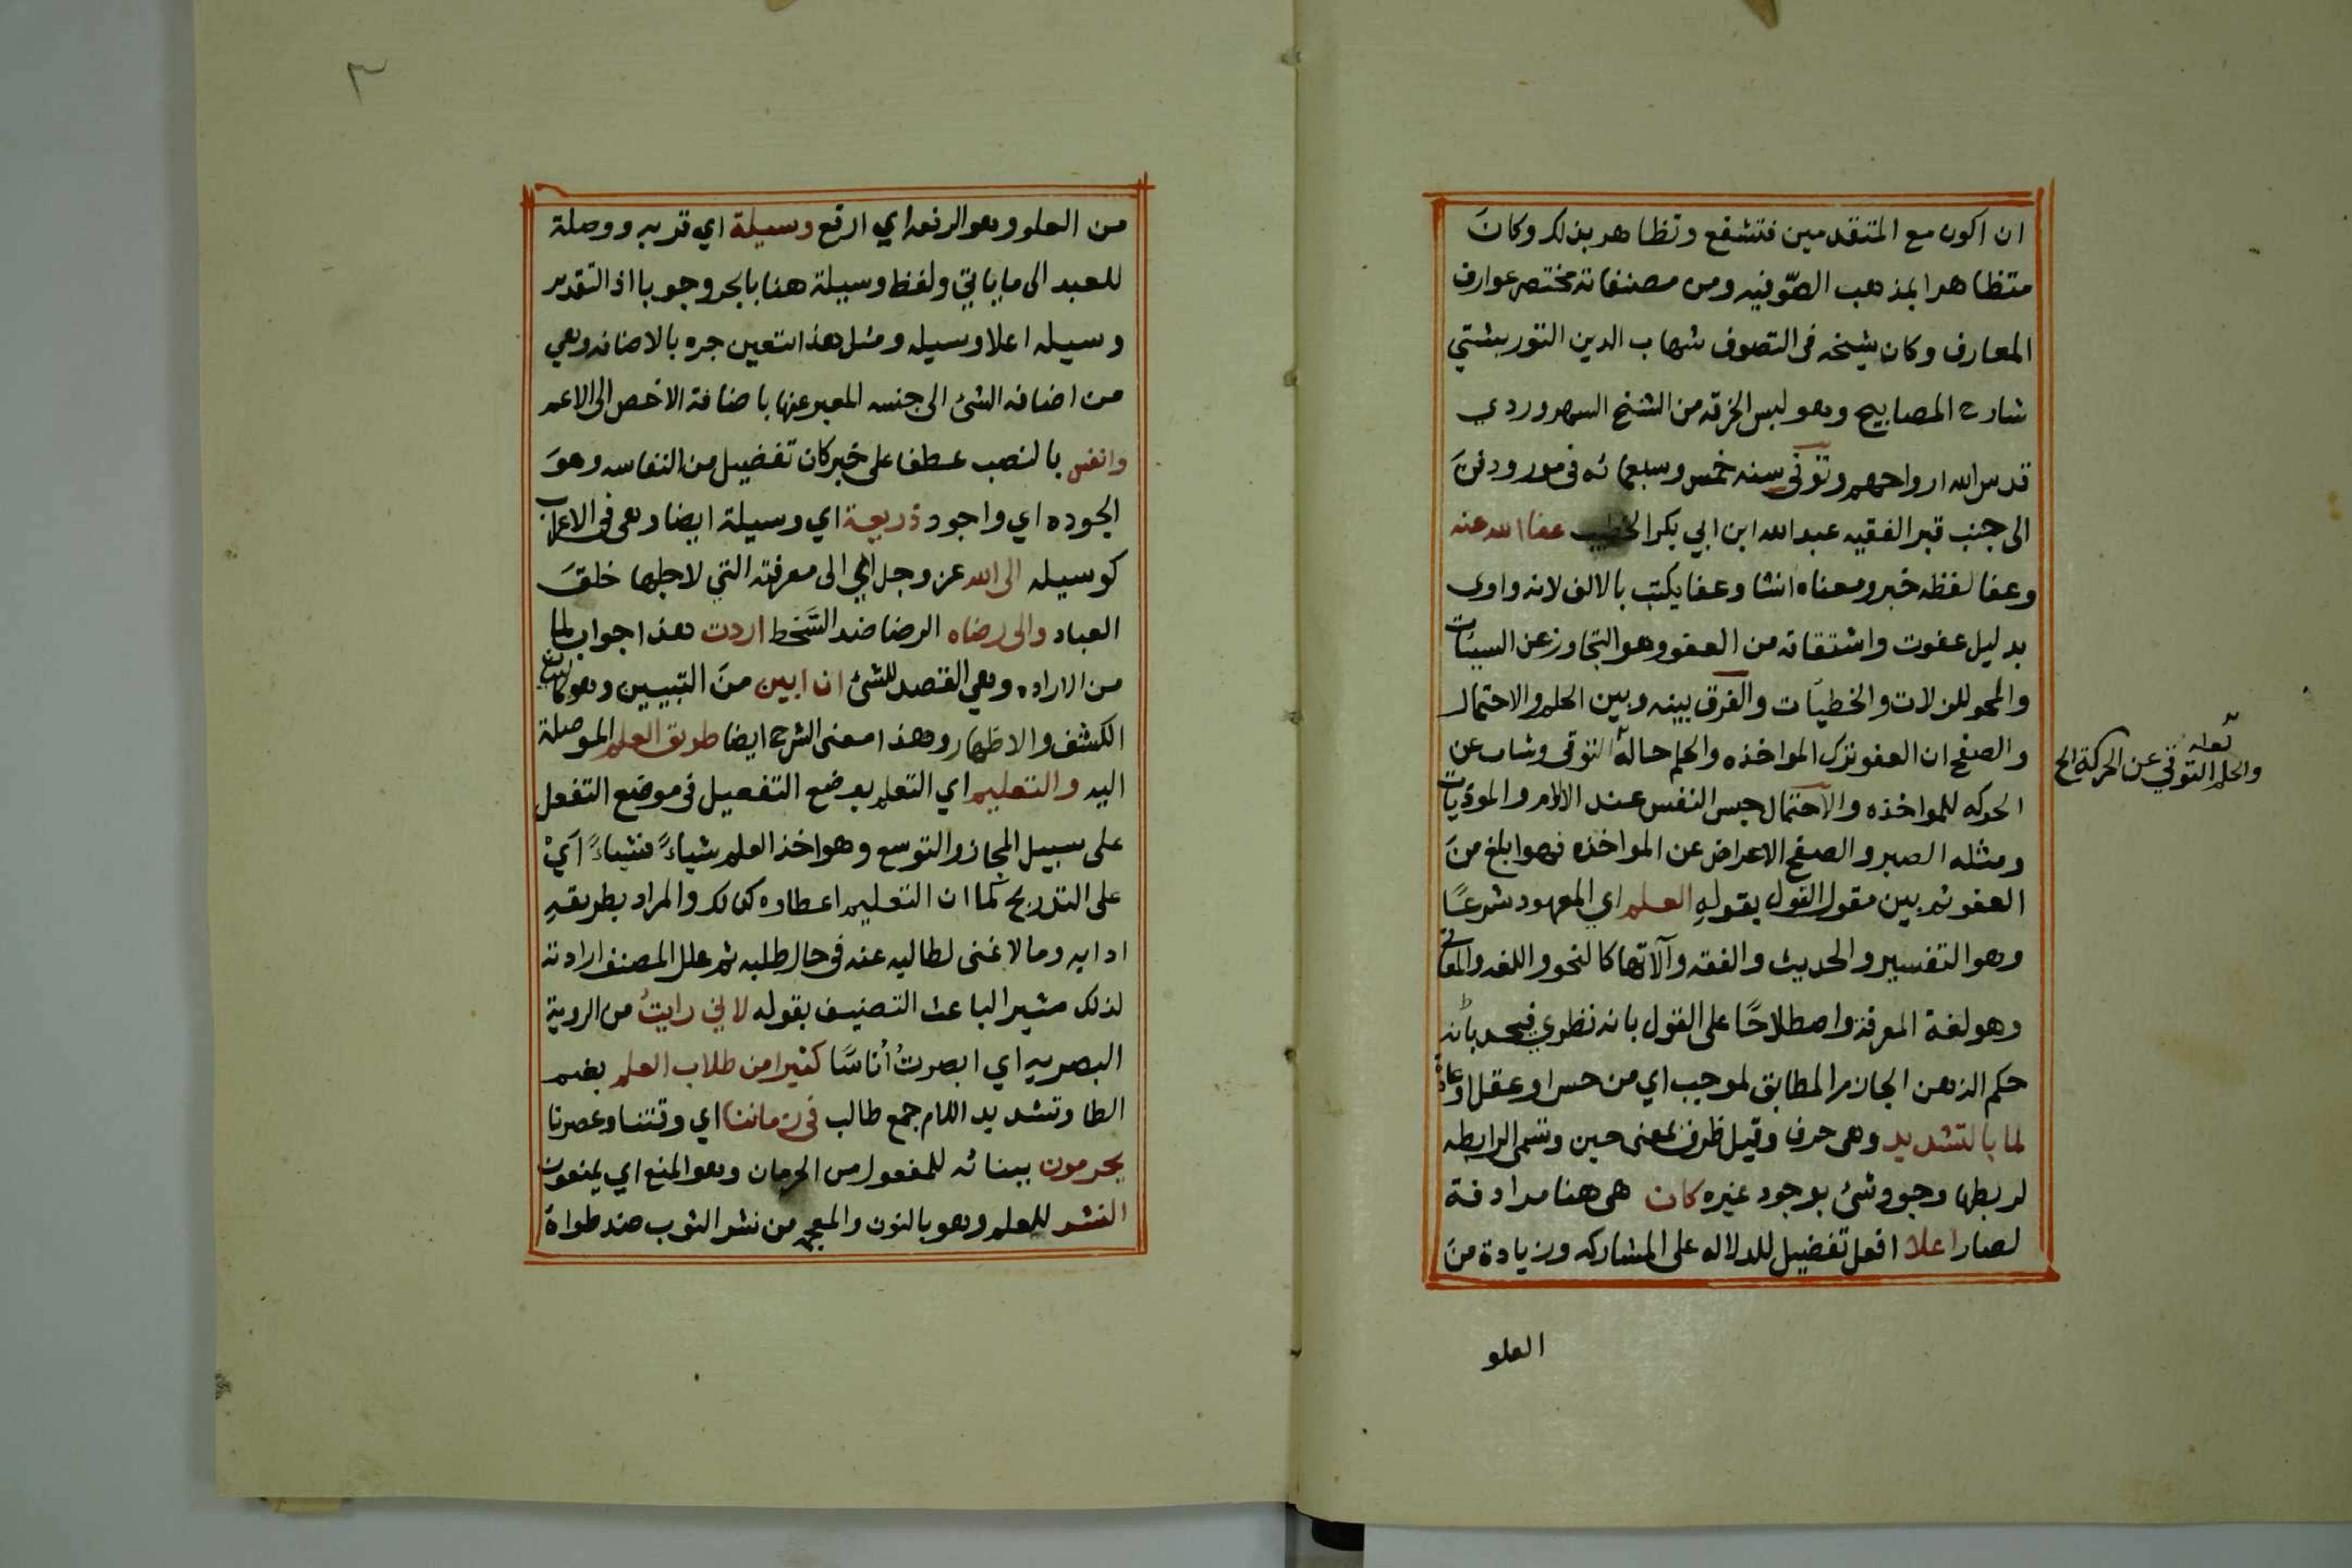 ان اكون مع المتقدمين فتشفع وتظاهر بذلك وكانَ
متظاهرا بمذهب الصّوفيه ومن مصنفاته مختصر عوارف
المعارف وكان شيخه في التصوف شهاب الدين التوربشتي
شارح المصابيح وهو لبس الخرقه من الشيخ السهروردي
قدس الله ارواحهم وتوفي سنه خمس وسبعمائه في مور ودفنَ
الى جنب قبر الفقيه عبد الله ابن ابي بكر الخطيب عفا الله عنه
وعفا لفظه خبر ومعناه انشا وعفا يكتب بالالف لانه واوى
بدليل عفوت واشتقاقه من العفو وهو التجاوز عن السيئات
والمحو للزلات والخطيات والفرق بينه وبين الحلم والاحتمال
والصفح ان العفو ترك المواخذه والحلم حالة التوقى وشاب عن
الحركه للمواخذه والاحتمال حبس النفس عند الالام والموذيات
ومثله الصبر والصفح الاعراض عن المواخذه فهو ابلغ منَ
العفو ثم بين مقول القول بقولهِ العلم اي المعهود شرعًا
وهو التفسير والحديث والفقه وآلاتها كالنحو واللغه والمعاني
وهو لغة المعرفة واصطلاحًا على القول بانه نظوي فيحد بانه
حكم الذهن الجازم المطابق لموجب اي من حس او عقل او عادة
لما بالتشديد وهى حرف وقيل ظرف بمعنى حين وتسمى الرابطه
لربطها وجود شئ بوجود غيره كان هى هنا مرادفة
لصار اعلا افعل تفضيل للدلاله على المشاركه وزيادة منَ
العلو
قوله
والحلم التوقي عن الحركة الخ
٣
من العلو وهو الرفعه اي ارفع وسيلة اي قربه ووصلة
للعبد الى ما ياتي ولفظ وسيلة هنا بالجر وجوبا اذ التقدير
وسيله اعلا وسيله ومثل هذا تتعين جره بالاضافه وهي
من اضافه الشئ الى جنسه المعبر عنها باضافة الاخص الى الاعم
وانفس بالنصب عطفا على خبر كان تفضيل من النفاسه وهوَ
الجوده اي واجود ذريعة اي وسيلة ايضا وهى في الاعراب
كوسيله الى الله عز وجل اي الى معرفته التي لاجلها خلقَ
العباد والى رضاه الرضا ضد السَّخط اردت هذا جواب لما
من الاراده وهي القصد للشئ ان ابين منَ التبيين وهو كالبيان
الكشف والاظهار وهذا معنى الشرح ايضا طريق العلم الموصلة
اليه والتعليم اي التعلم بوضع التفعيل في موضع التفعل
على سبيل المجاز والتوسع وهو اخذ العلم شياءً فشياءً اَيْ
على التدريج كما ان التعليم اعطاوه كذلك والمراد بطريقهِ
ادابه ومالا غنى لطالبه عنه في حال طلبه ثم علل المصنف ارادته
لذلك مشيرا لباعث التصنيف بقوله لاني رايتُ من الروية
البصريه اي ابصرتُ اُناسًا كثيرا من طلاب العلم بضم
الطا وتشديد اللام جمع طالب في زماننا اي وقتنا وعصرنا
يحرمون ببنائه للمفعول من الحرمان وهو المنع اي يمنعون
النشر للعلم وهو بالنون والمعجمه من نشر الثوب ضد طواهُ